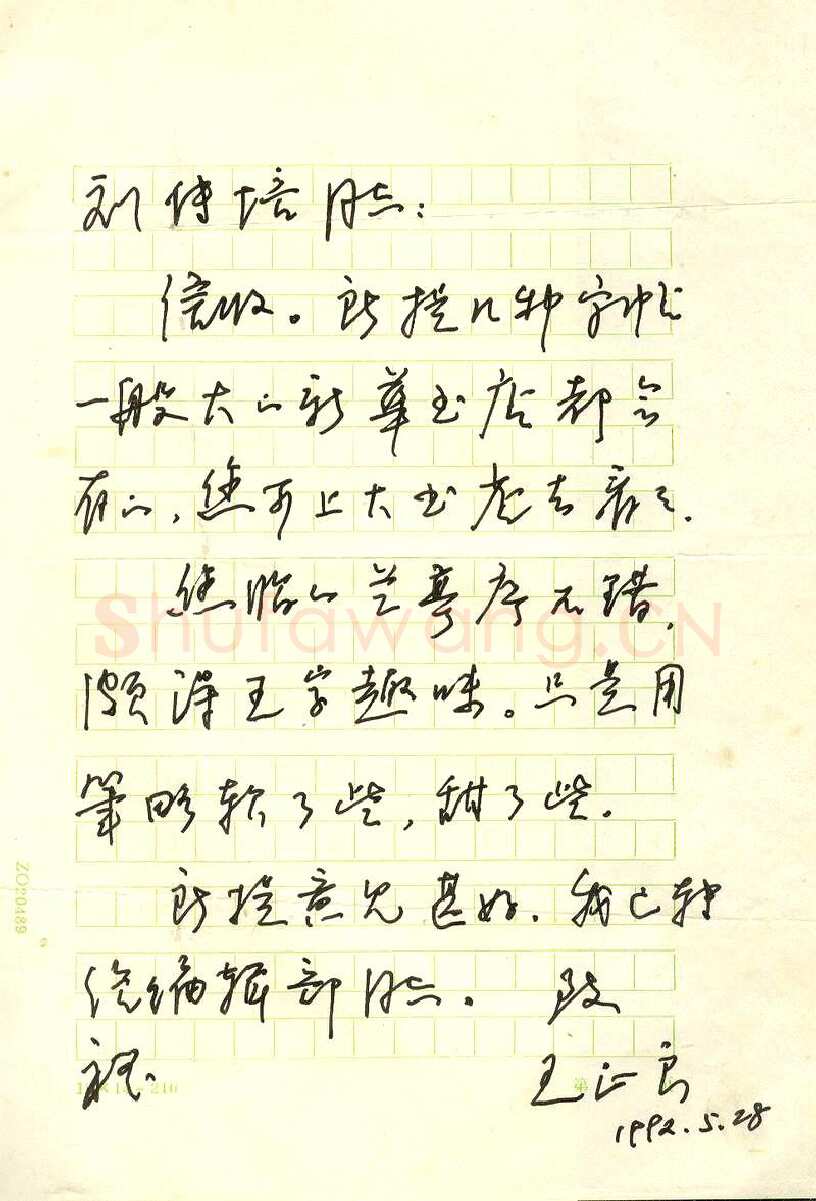 刘传培同志：
信收。所提几种字帖
一般大的新华书店都会
有的，您可上大书店去看看。
您临的兰亭序不错，
颇得王字趣味。只是用
笔略软了些，甜了些。
所提意见甚好，我已转
给编辑部同志。 致
礼
王正良
1992.5.28
Shufawang.CN
ZO20489
第